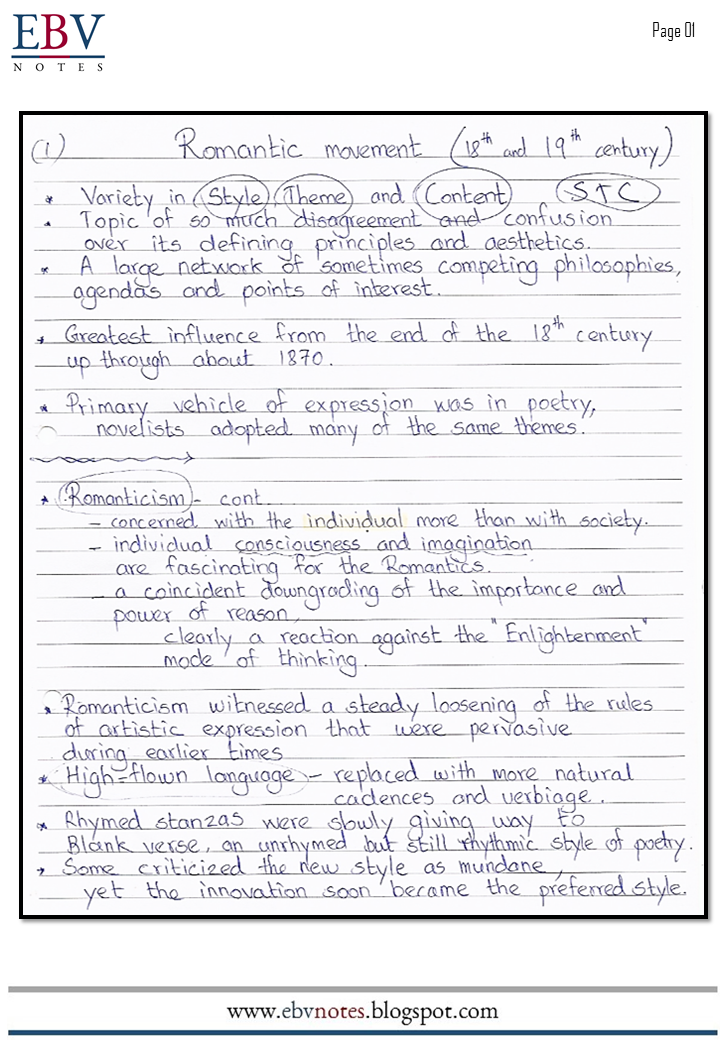 EBV
NOTES
Page 01
(1) Romantic movement (18th and 19th century)
* Variety in Style, Theme and Content STC
* Topic of so much disagreement and confusion
over its defining principles and aesthetics.
* A large network of sometimes competing philosophies,
agendas and points of interest.
* Greatest influence from the end of the 18th century
up through about 1870.
* Primary vehicle of expression was in poetry,
novelists adopted many of the same themes.
* Romanticism - cont.
- concerned with the individual more than with society.
- individual consciousness and imagination
are fascinating for the Romantics.
- a coincident downgrading of the importance and
power of reason,
clearly a reaction against the "Enlightenment"
mode of thinking.
* Romanticism witnessed a steady loosening of the rules
of artistic expression that were pervasive
during earlier times
* High-flown language - replaced with more natural
cadences and verbiage.
* Rhymed stanzas were slowly giving way to
Blank verse, an unrhymed but still rhythmic style of poetry.
* Some criticized the new style as mundane,
yet the innovation soon became the preferred style.
www.ebvnotes.blogspot.com